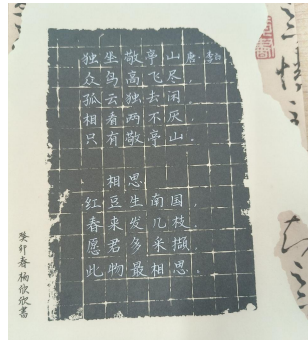 独坐敬亭山 唐·李白
众鸟高飞尽
孤云独去闲.
相看两不厌
只有敬亭山.
相思
红豆生南国
春来发几枝
愿君多采撷.
此物最相思.
癸卯春杨欣欣書